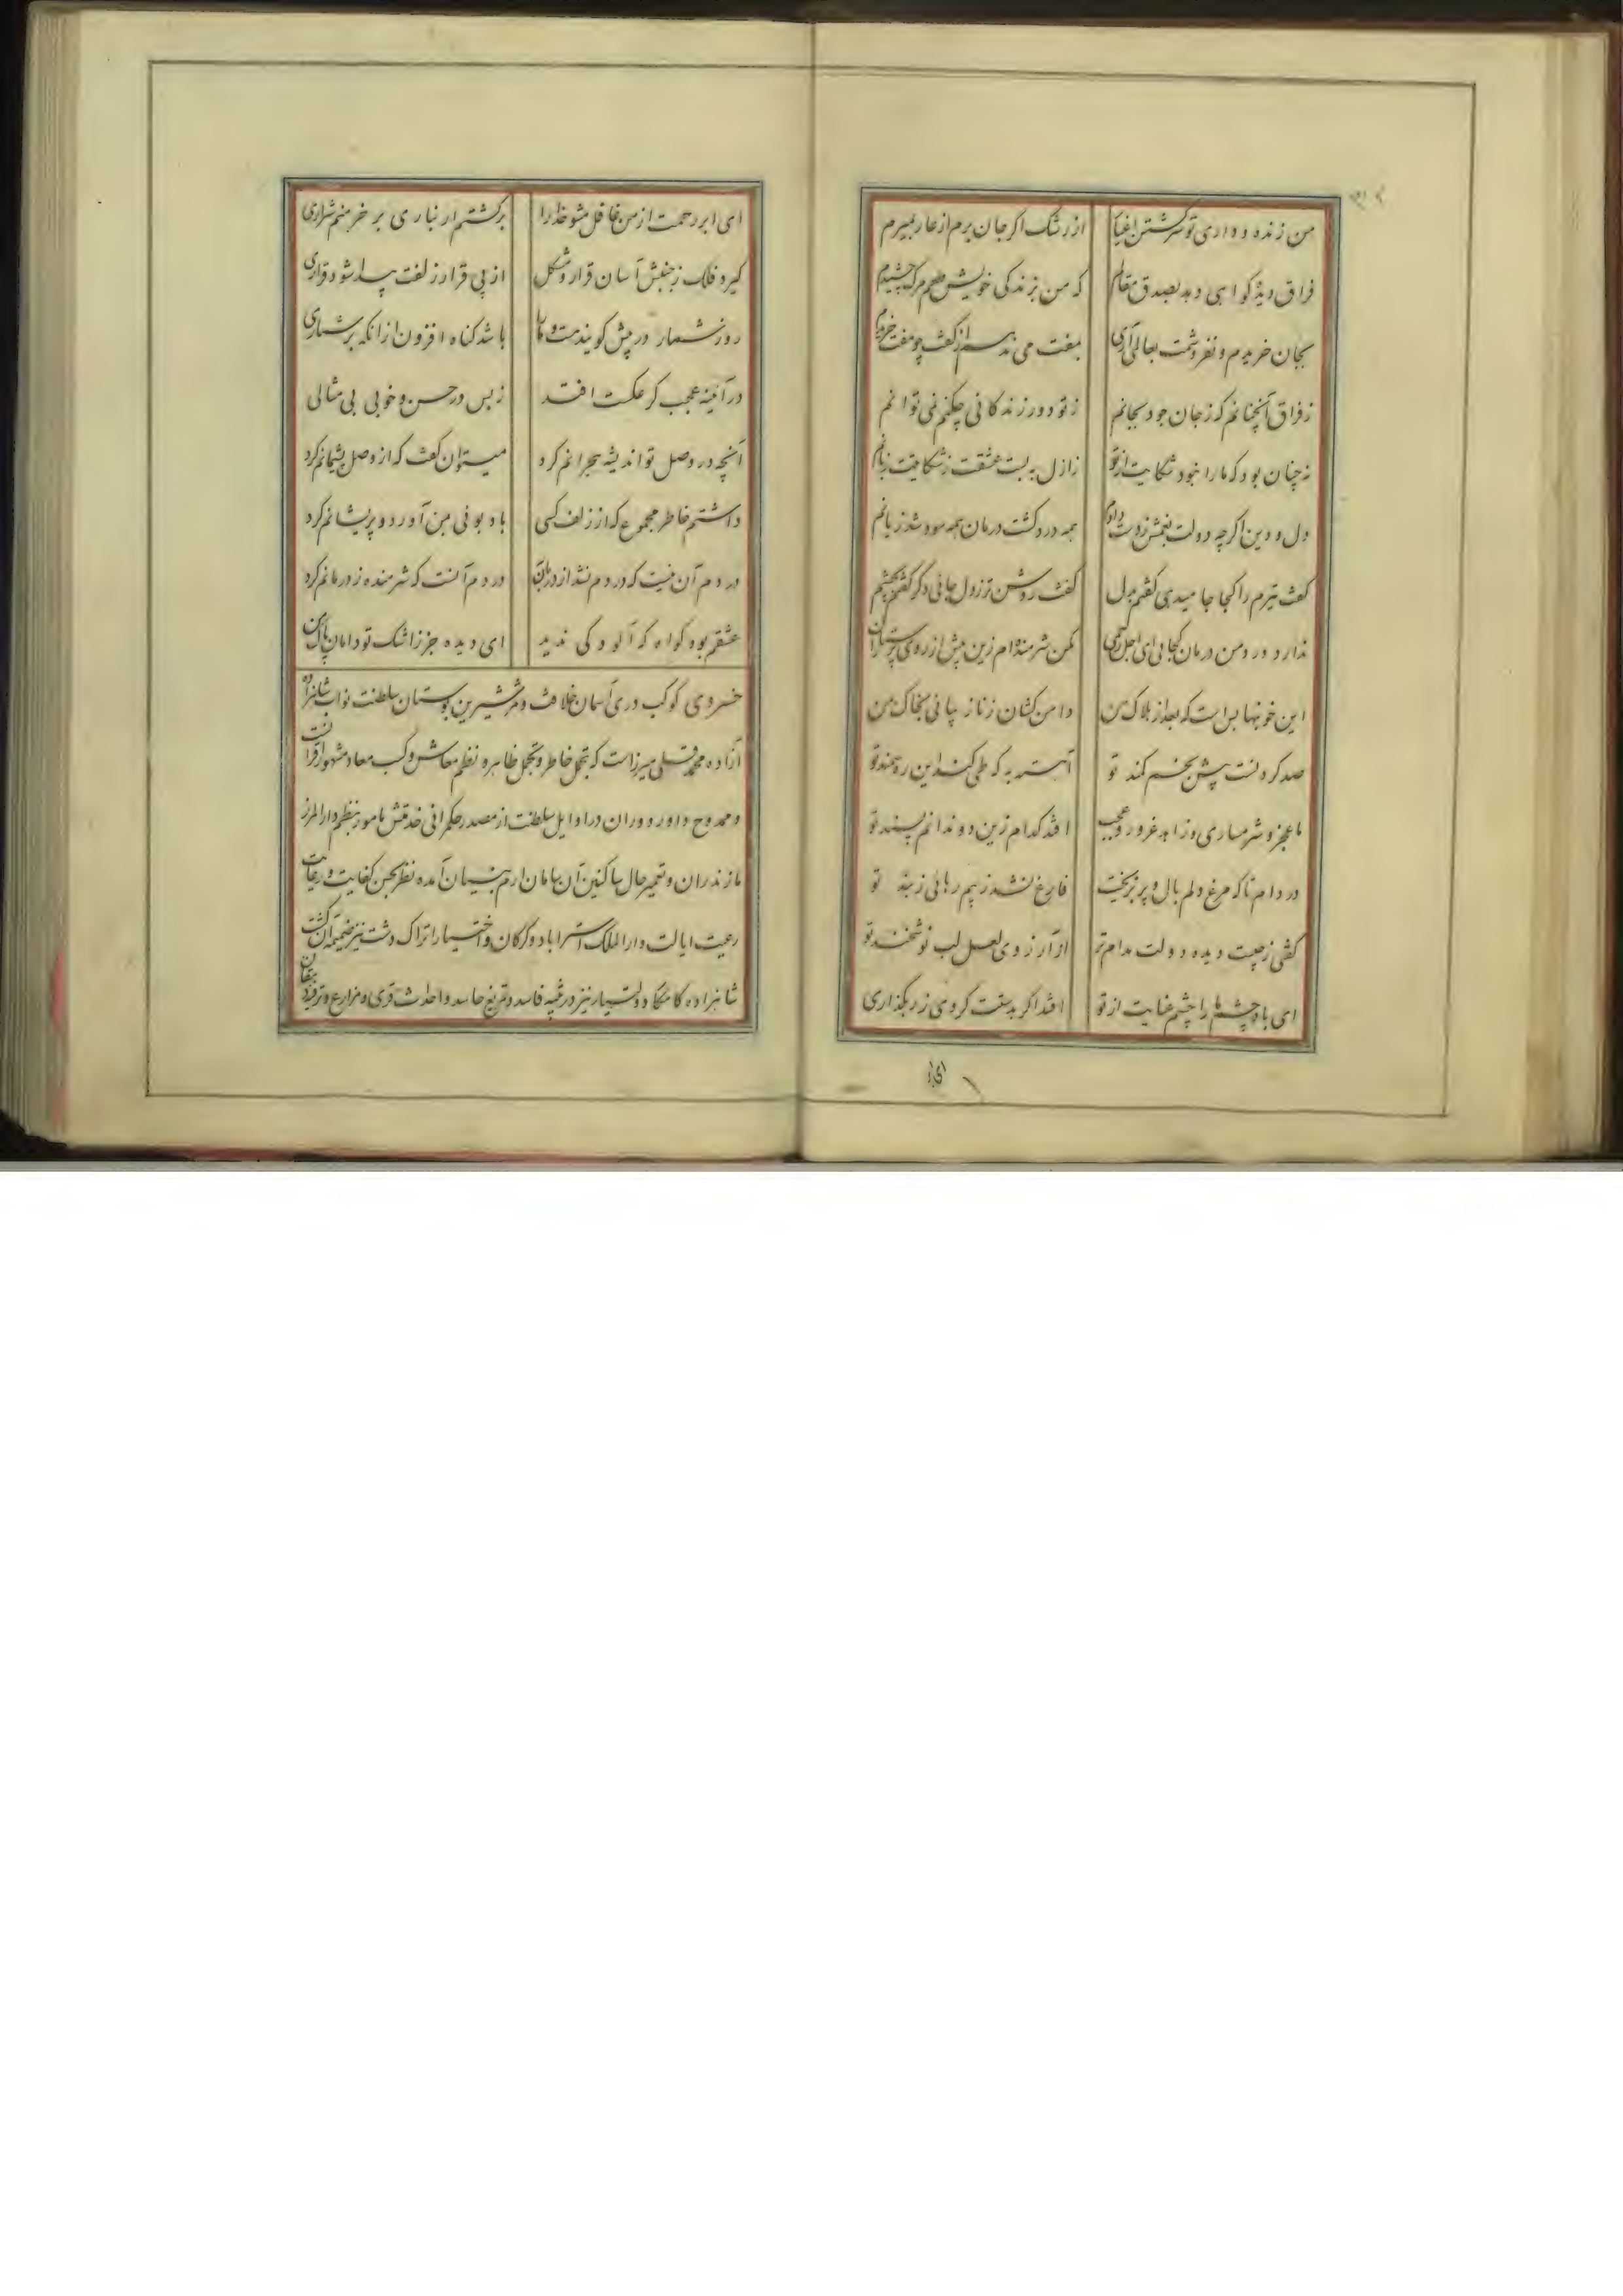 من زنده و داری تو سر کشتن اغیار از رشک اگر جان برم از عار بمیرم
فراق دیده گواهی دهد بصدق مقالم که من بزندگی خویش طعم مرگ چشیدم
بجان خریدم و نفروشمت بعالمی آری بمفت می ندهم از کف چو مفت خریدم
ز فراق آنچنانم که ز جان خود بجانم ز تو دور زندگانی چکنم نمی توانم
نه چنان بود که ما را نبود شکایت از تو ز ازل به بست عشقت ز شکایتت زبانم
دل و دین اگرچه دولت بغمش ز دست دادم همه درد گشت درمان همه سود شد زیانم
گفت تیرم را کجا جا میدهی گفتم بدل گفت روشن تر ز دل جائی دگر گفتم بچشم
ندارد درد من درمان کجائی ای اجل رحمی مکن شرمنده ام زین پیش از روی پرستاران
این خونبها بس است که بعد از هلاک من دامن کشان ز ناز بیائی بخاک من
صد کردنست پیش بخم کمند تو آهسته به که طی کند این ره سمند تو
ما عجز و شرمساری و زاهد غرور و عجب افتد کدام زین دو ندانم پسند تو
در دام تا که مرغ دلم بال و پر نریخت فارغ نشد ز بیم رهائی ز بند تو
گفتی ز چیست دیده دولت مدام تر از آرزوی لعل لب نوشخند تو
ای باد چشمها را چشم عنایت از تو افتد اگر بدستت گردی ز رهگذاری
ای ابر
ای ابر رحمت از من غافل مشو خدا را بر کشتم ار نباری بر خرمنم شراری
گیرد فلک ز جنبش آسان قرار و مشکل از بی قرار زلفت پیدا شود قراری
روز شمار در پیش گویندت و ما را باشد گناه افزون از آنکه بر شماری
در آئینه عجب گر عکست افتد ز بس در حسن و خوبی بی مثالی
آنچه در وصل تو اندیشه هجرانم کرد میتوان گفت که از وصل پشیمانم کرد
داشتم خاطر مجموع که از زلف کسی باد بوئی بمن آورد و پریشانم کرد
دردم آن نیست که دردم نشد از درمان به دردم آنست که شرمنده ز درمانم کرد
عشقم بود گواه که آلودگی ندید ای دیده جز ز اشک تو دامان پاک من
خسروی کوکب دری آسمان خلافت و ثمر شیرین بوستان سلطنت نواب شاهزاده
آزاده محمد قلی میرزاست که بتحمل خاطر و تجمل ظاهر و نظم معاش و کسب معاد مشهور آفاقست
و ممدوح داور دوران در اوایل سلطنت از مصدر حکمرانی خدمتش مامور بنظم دارالمرز
مازندران و تعمیر حال ساکنین آن سامان ارم بنیان آمده نظر بحسن کفایت و رعایت
رعیت ایالت دارالملک استراباد و گرگان و اختیار اتراک دشت نیز ضمیمه آن گشت
شاهزاده کامکار دولتیار نیز در تنبیه فاسد و تفریغ حاسد و احداث قری و مزارع و ترفیه